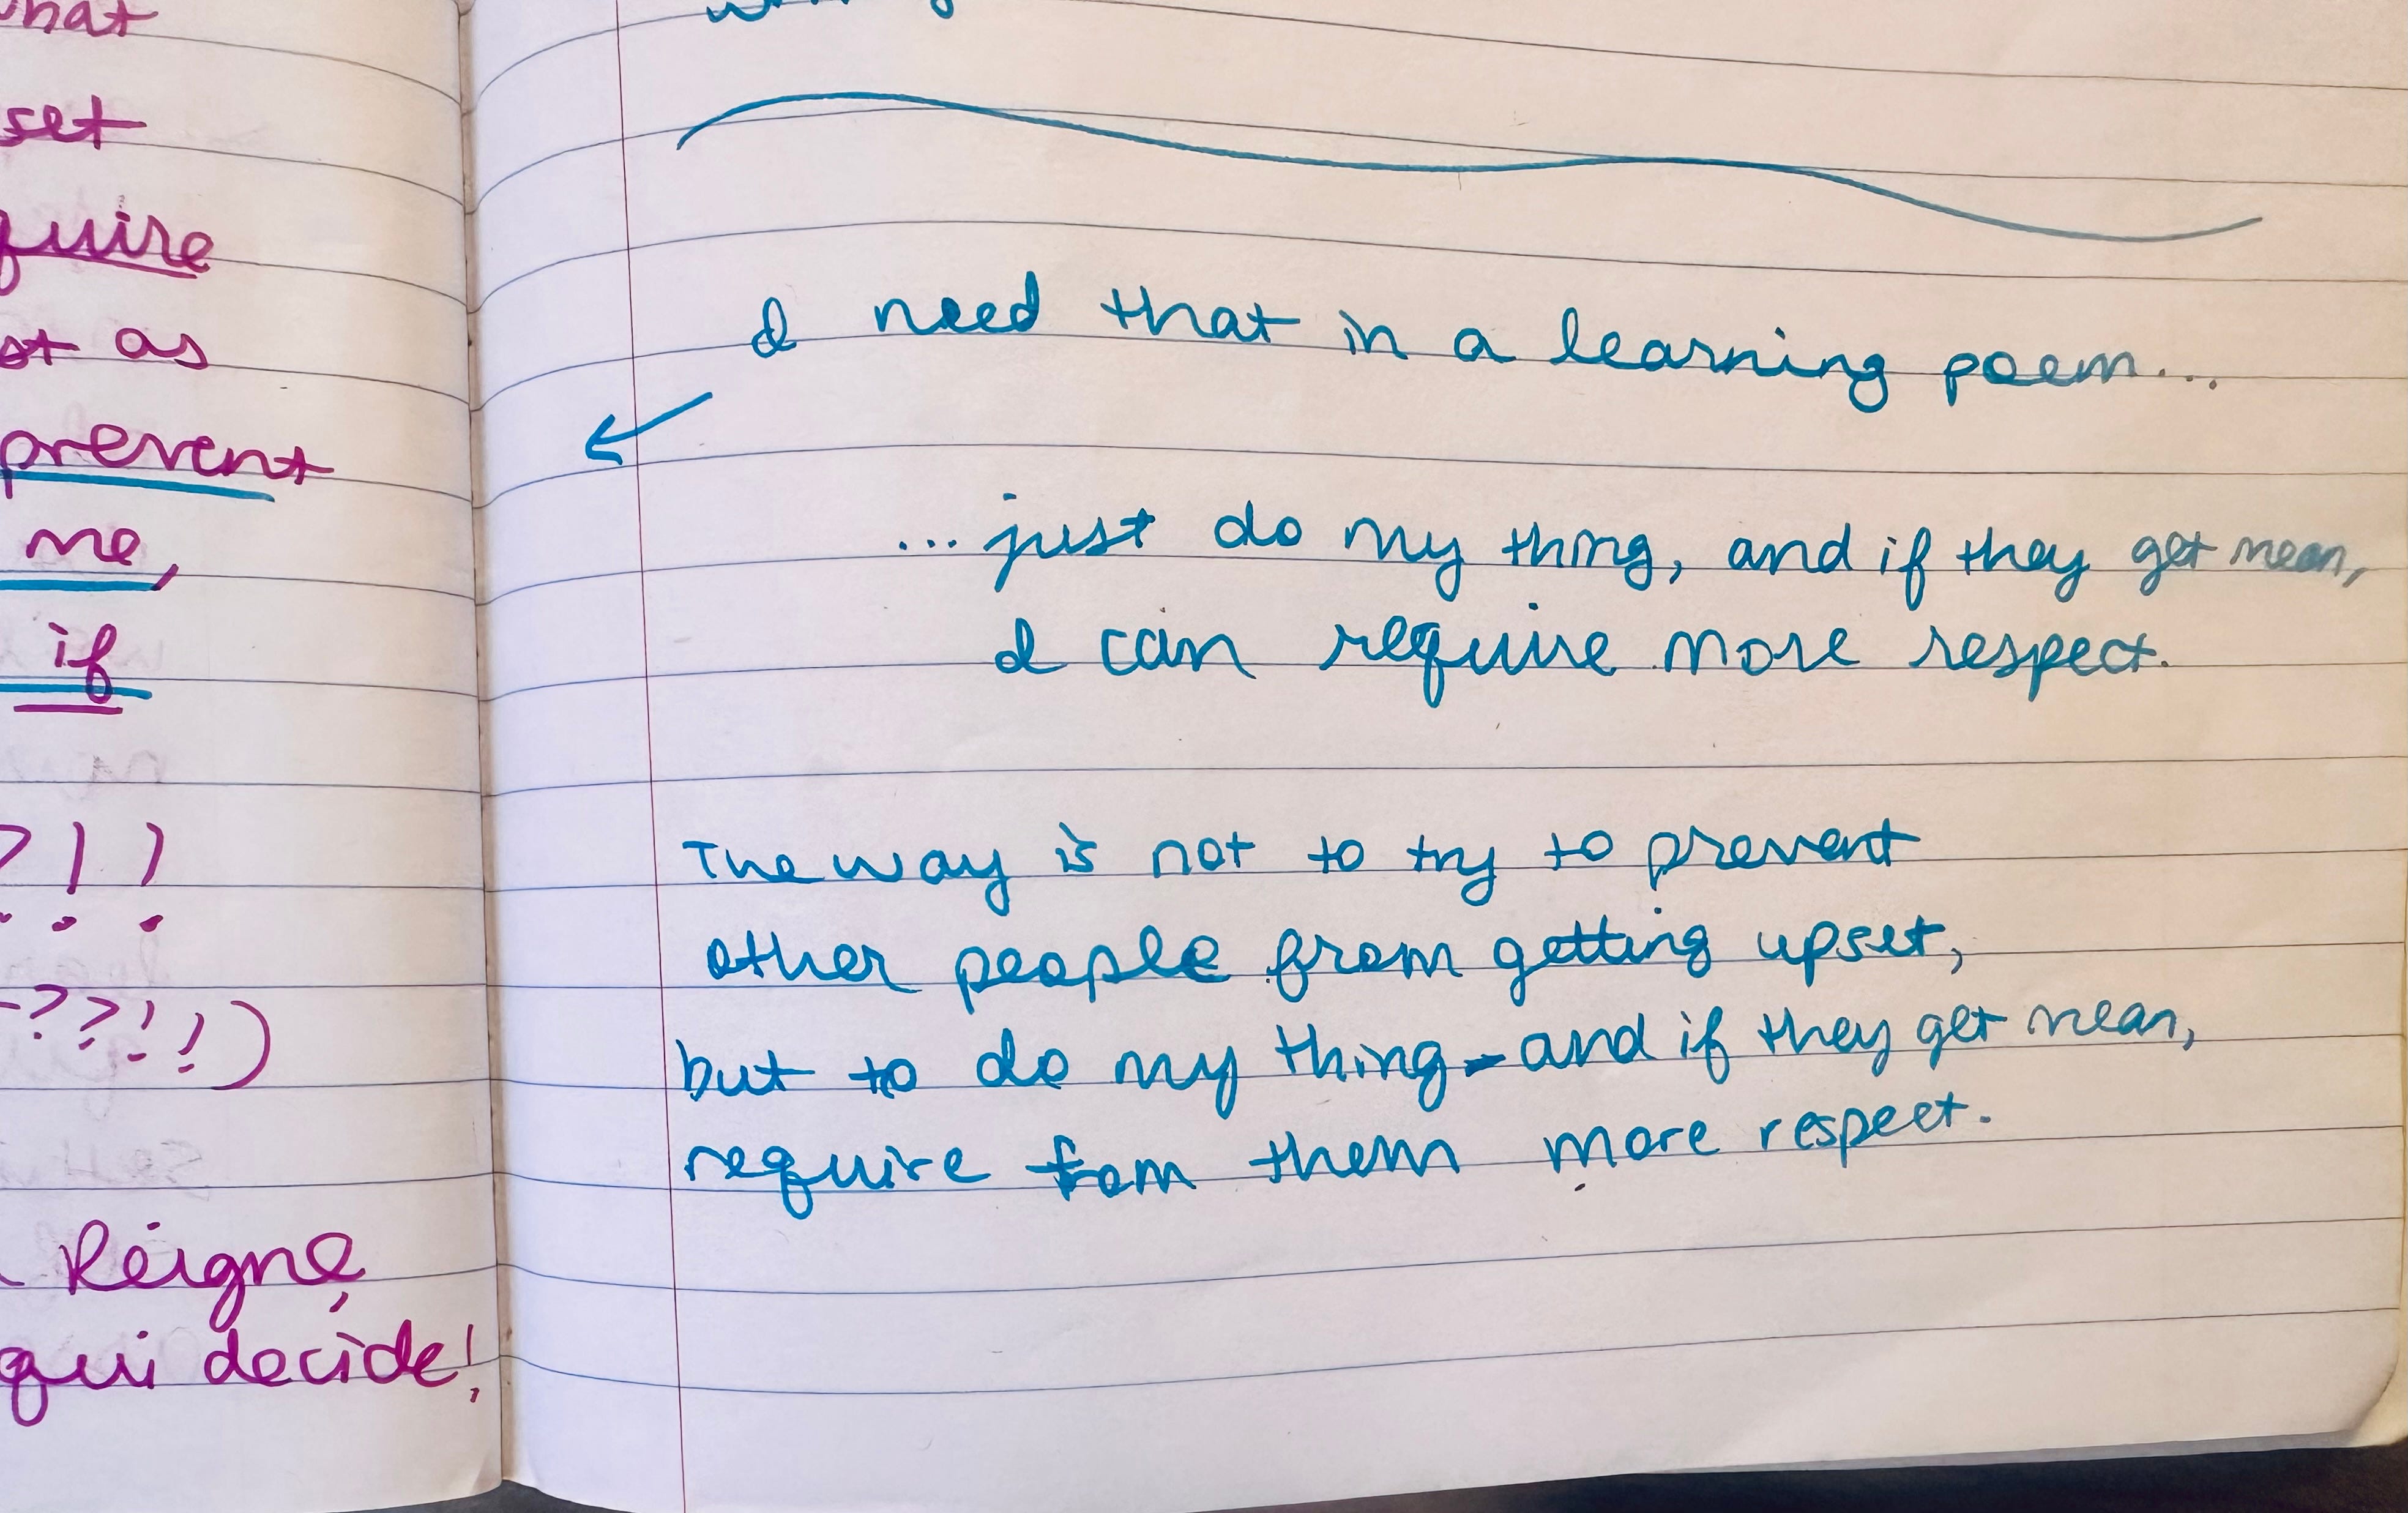 what
set
quire
st as
prevent
me,
if
?!!
??!!)
Reigne,
qui decide!
I need that in a learning poem...
... just do my thing, and if they get mean,
I can require more respect.
The way is not to try to prevent
other people from getting upset,
but to do my thing - and if they get mean,
require fom them more respect.